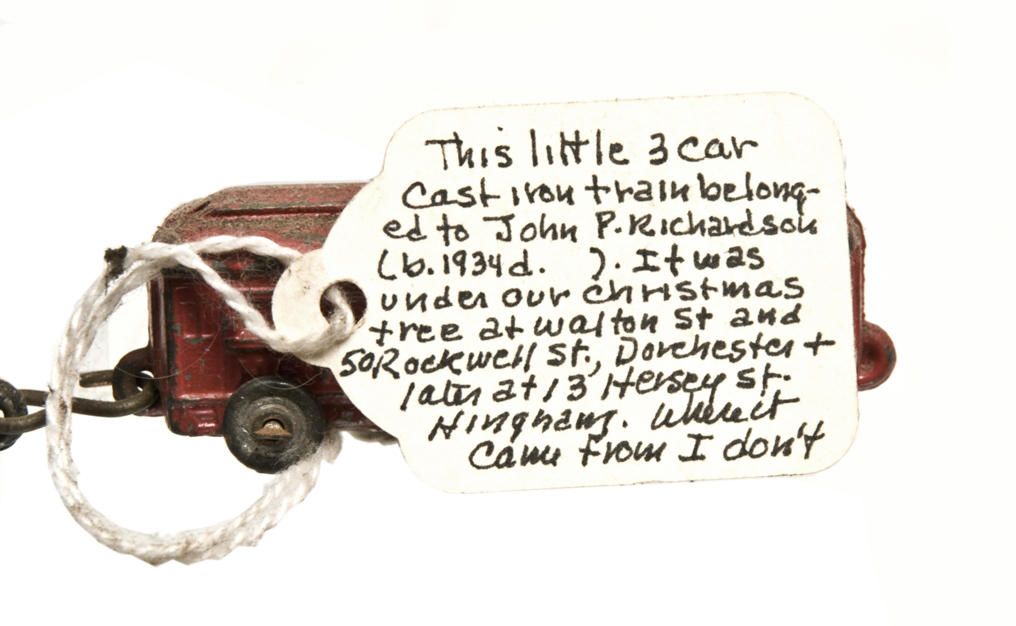 This little 3 car
Cast iron train belong-
ed to John P. Richardson
(b. 1934 d.    ). It was
under our christmas
tree at Walton St and
50 Rockwell St., Dorchester +
later at 13 Hersey St.
Hingham. Where it
came from I don't